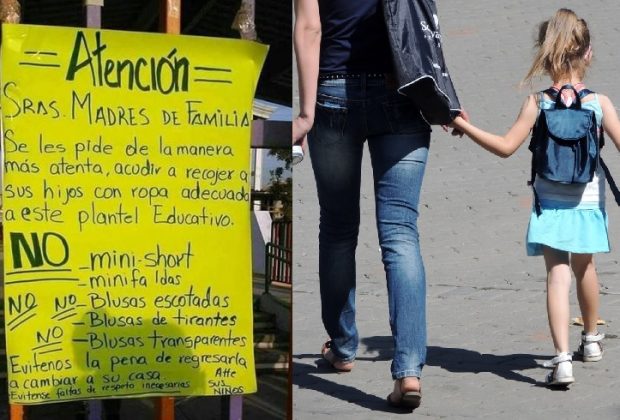 = Atención =
SRAS. MADRES DE FAMILIA
Se les pide de la manera
más atenta, acudir a recojer a
sus hijos con ropa adecuada
a este plantel Educativo.
NO - mini-short
minifaldas
NO NO - Blusas escotadas
- Blusas de tirantes
NO - Blusas transparentes
Evitenos la pena de regresarla
a cambiar a su casa. Atte
Evitense faltas de respeto inecesarias SUS
NIÑOS